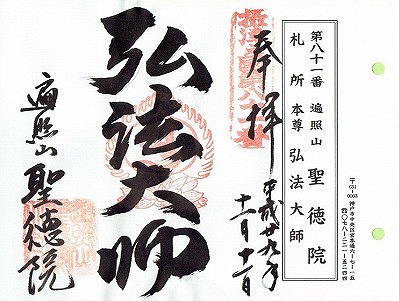 第八十一番 遍照山 聖徳院
札所本尊 弘法大師
〒651-0063 神戸市中央区宮本通六-七-一五
奉拝
平成廿九年
十一月十二日
弘法大師
遍照山 聖徳院